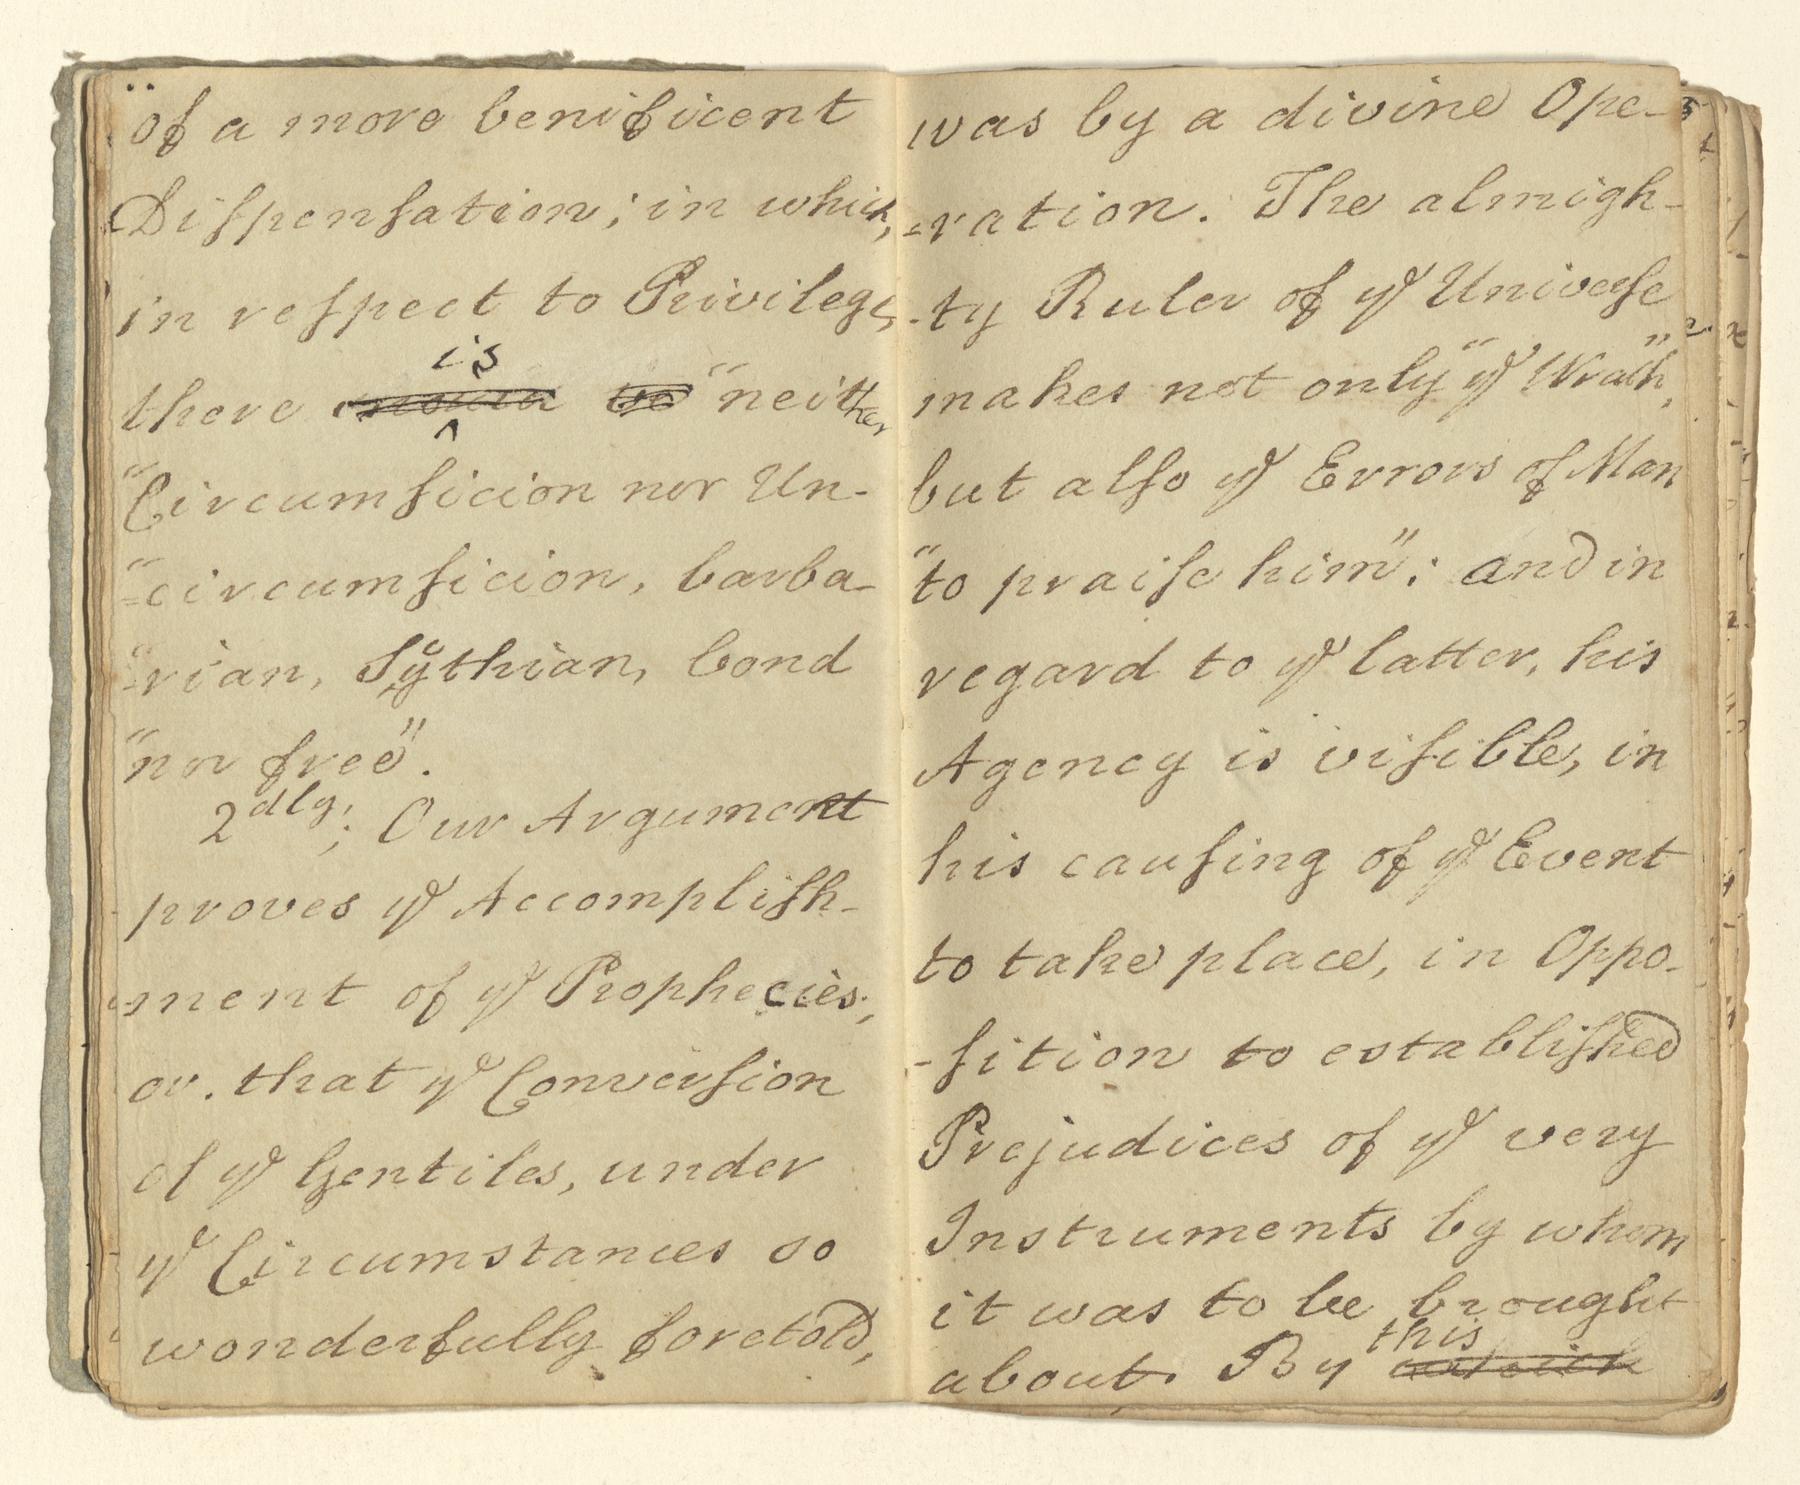 of a more benificent
Dispensation; in which,
in respect to Privilege,
is
there would be "neither
"Circumsicion nor Un-
"=circumsicion, barba-
"-rian, Sythian, bond
"nor free".
2dly; Our Argument
proves ye Accomplish-
-ment of ye Prophecies;
or. that ye Conversion
of ye Gentiles, under
ye Circumstances so
wonderfully foretold,
was by a divine Ope-
=ration. The almigh-
-ty Ruler of ye Universe
makes not only "ye Wrath",
but also ye Errors of Man
"to praise him"; and in
regard to ye latter, his
Agency is visible, in
his causing of ye Event
to take place, in Oppo-
-sition to established
Prejudices of ye very
Instruments by whom
it was to be brought
this
about. By which